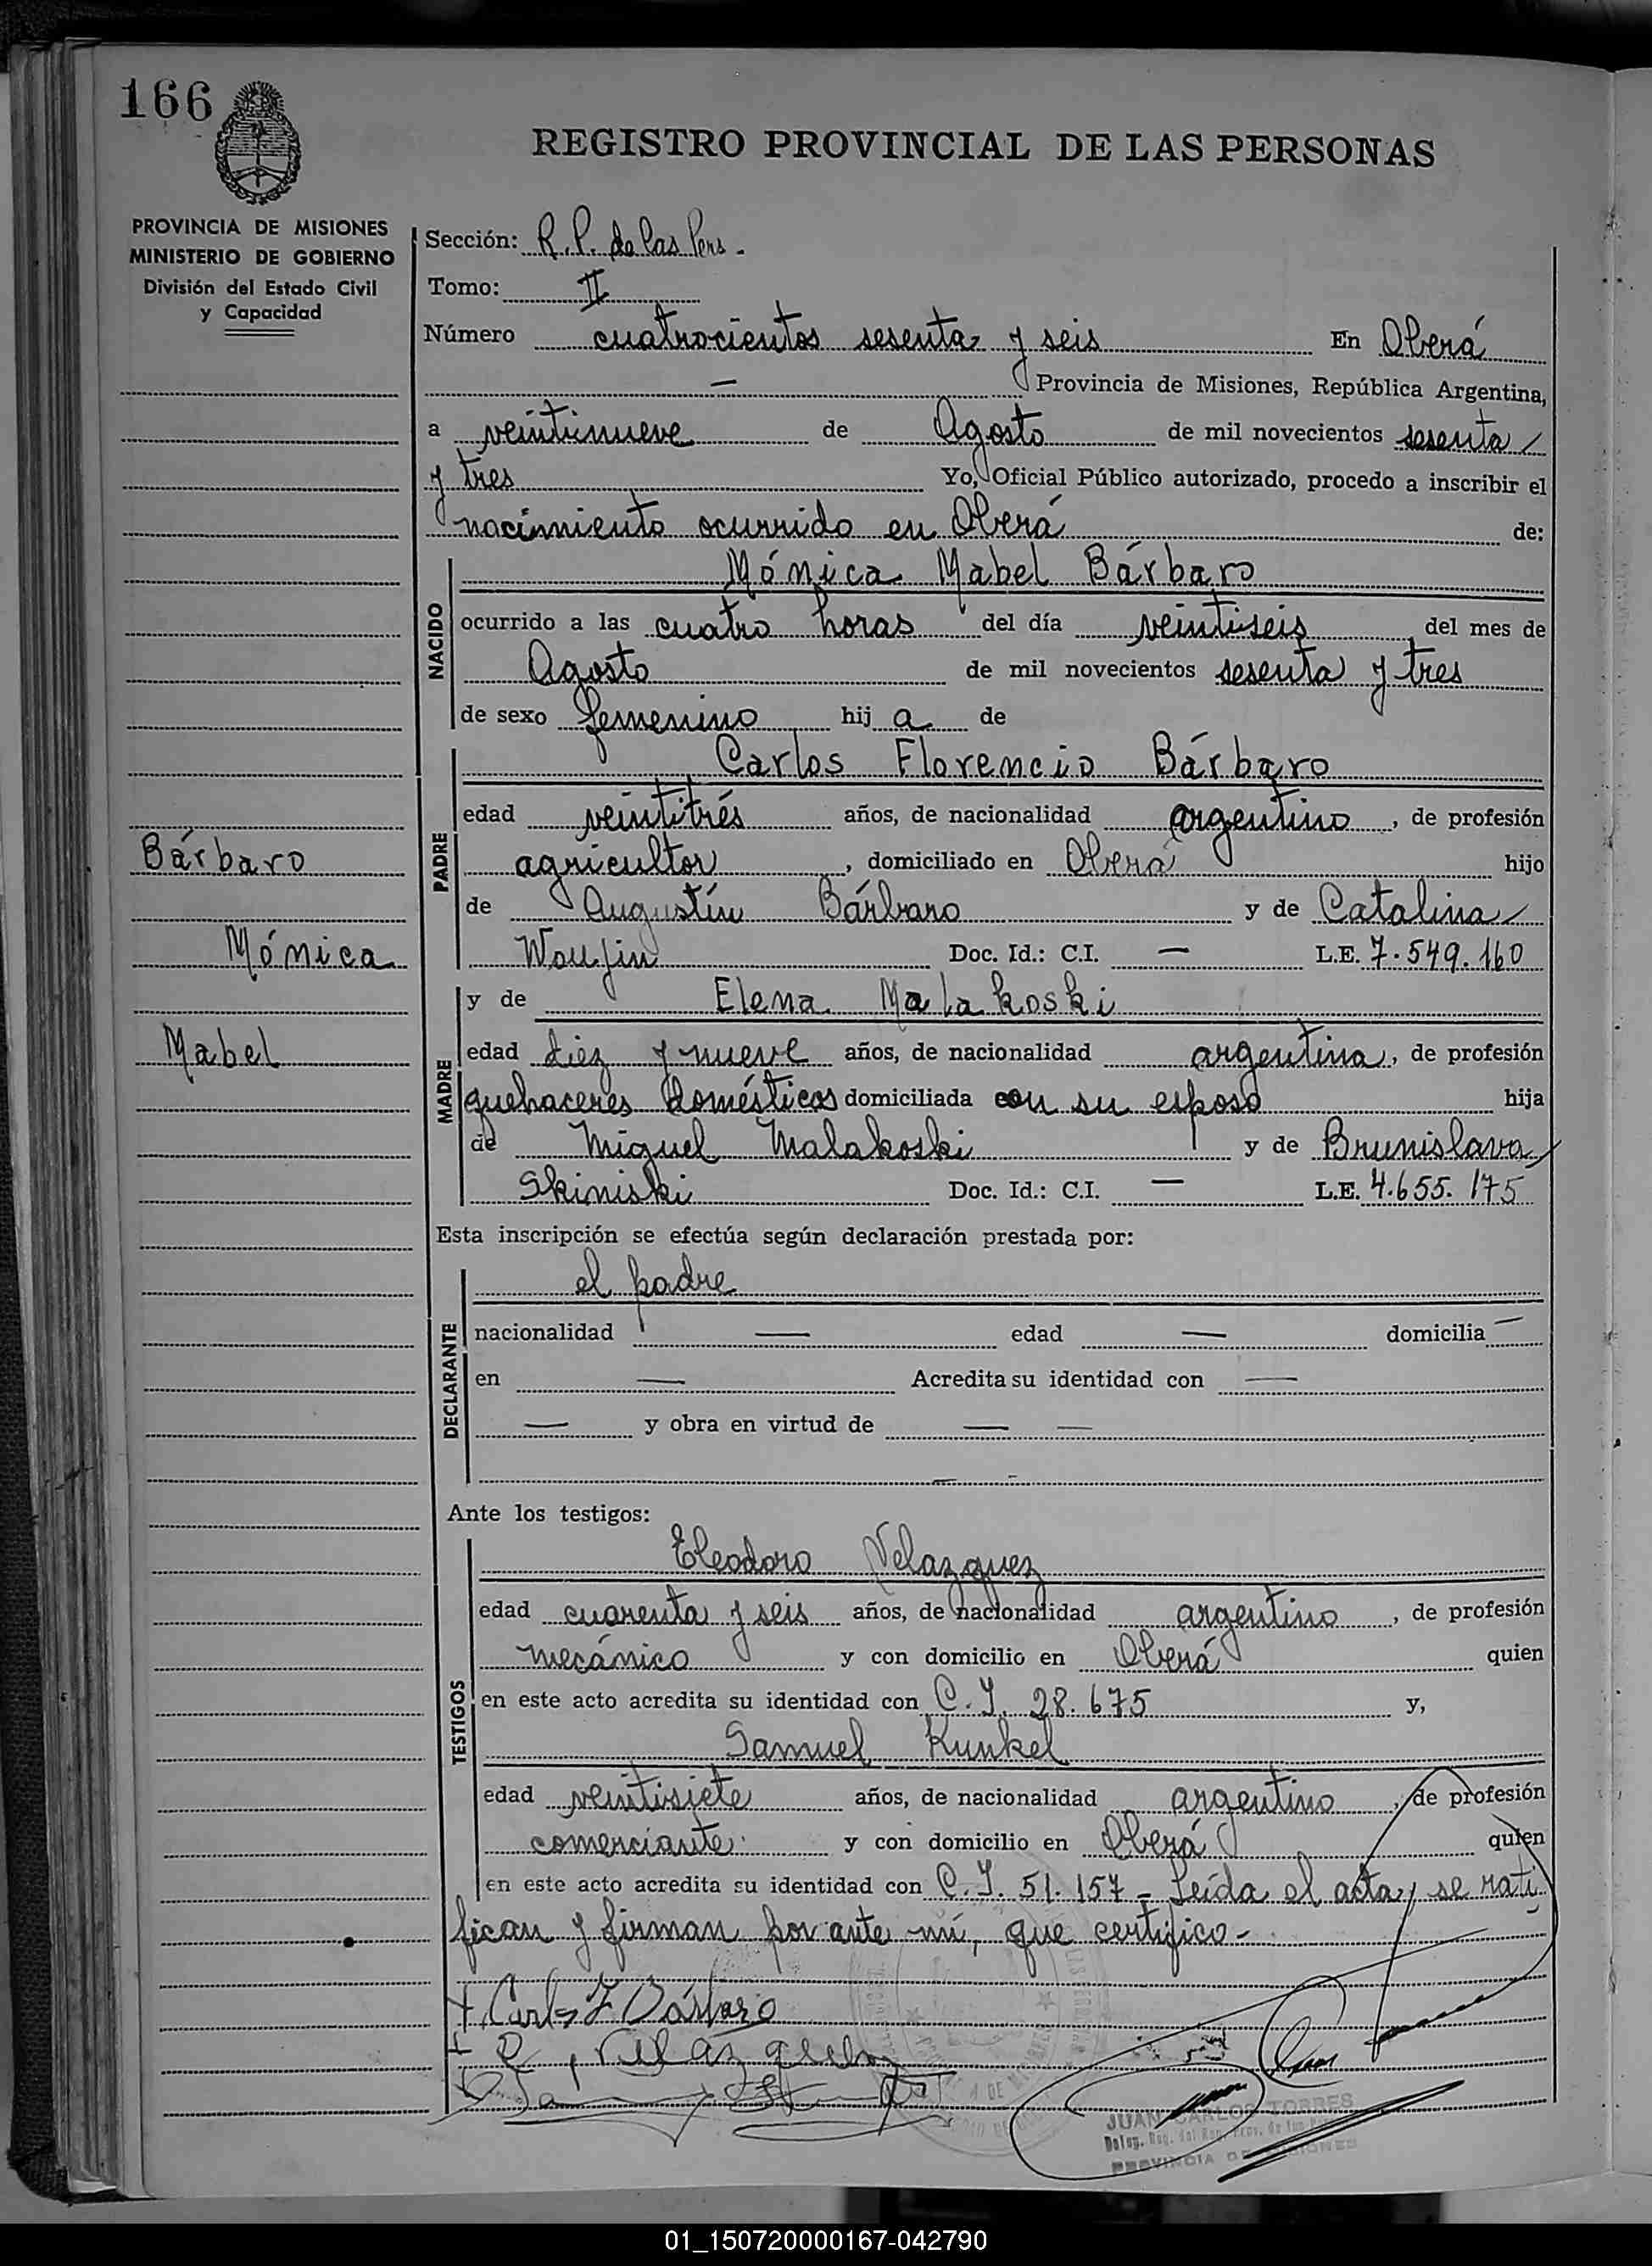 166
REGISTRO PROVINCIAL DE LAS PERSONAS
PROVINCIA DE MISIONES
MINISTERIO DE GOBIERNO
División del Estado Civil
y Capacidad
Sección: R. P. de las Pers -
Tomo: II
Número cuatrocientos sesenta y seis En Oberá
— Provincia de Misiones, República Argentina,
a veintinueve de Agosto de mil novecientos sesenta
y tres Yo, Oficial Público autorizado, procedo a inscribir el
nacimiento ocurrido en Oberá de:
NACIDO
Mónica Mabel Bárbaro
ocurrido a las cuatro horas del día veintiseis, del mes de
Agosto de mil novecientos sesenta y tres
de sexo femenino hij a de
PADRE
Carlos Florencio Bárbaro
edad veintitrés años, de nacionalidad argentino, de profesión
Bárbaro
agricultor, domiciliado en Oberá hijo
de Augustín Bárbaro y de Catalina
Mónica
Doc. Id.: C.I. — L.E. 7.549.160
y de Elena Malakoski
Mabel
MADRE
edad diez y nueve años, de nacionalidad argentina, de profesión
quehaceres domésticos domiciliada con su esposo hija
de Miguel Malakoski y de Brunislava
Skiniski Doc. Id.: C.I. — L.E. 4.655.175
Esta inscripción se efectúa según declaración prestada por:
DECLARANTE
el padre
nacionalidad — edad — domicilia —
en — Acredita su identidad con —
— y obra en virtud de — —
Ante los testigos:
TESTIGOS
Eleodoro Velazquez
edad cuarenta y seis años, de nacionalidad argentino, de profesión
mecánico y con domicilio en Oberá quien
en este acto acredita su identidad con C.I. 28.675 y,
Samuel Kunkel
edad veintisiete años, de nacionalidad argentino, de profesión
comerciante y con domicilio en Oberá quien
en este acto acredita su identidad con C.I. 51.157 - Leída el acta, se rati
fican y firman por ante mí, que certifico -
Carlos F Bárbaro
JUAN CARLOS TORRES
PROVINCIA DE MISIONES
01_150720000167-042790